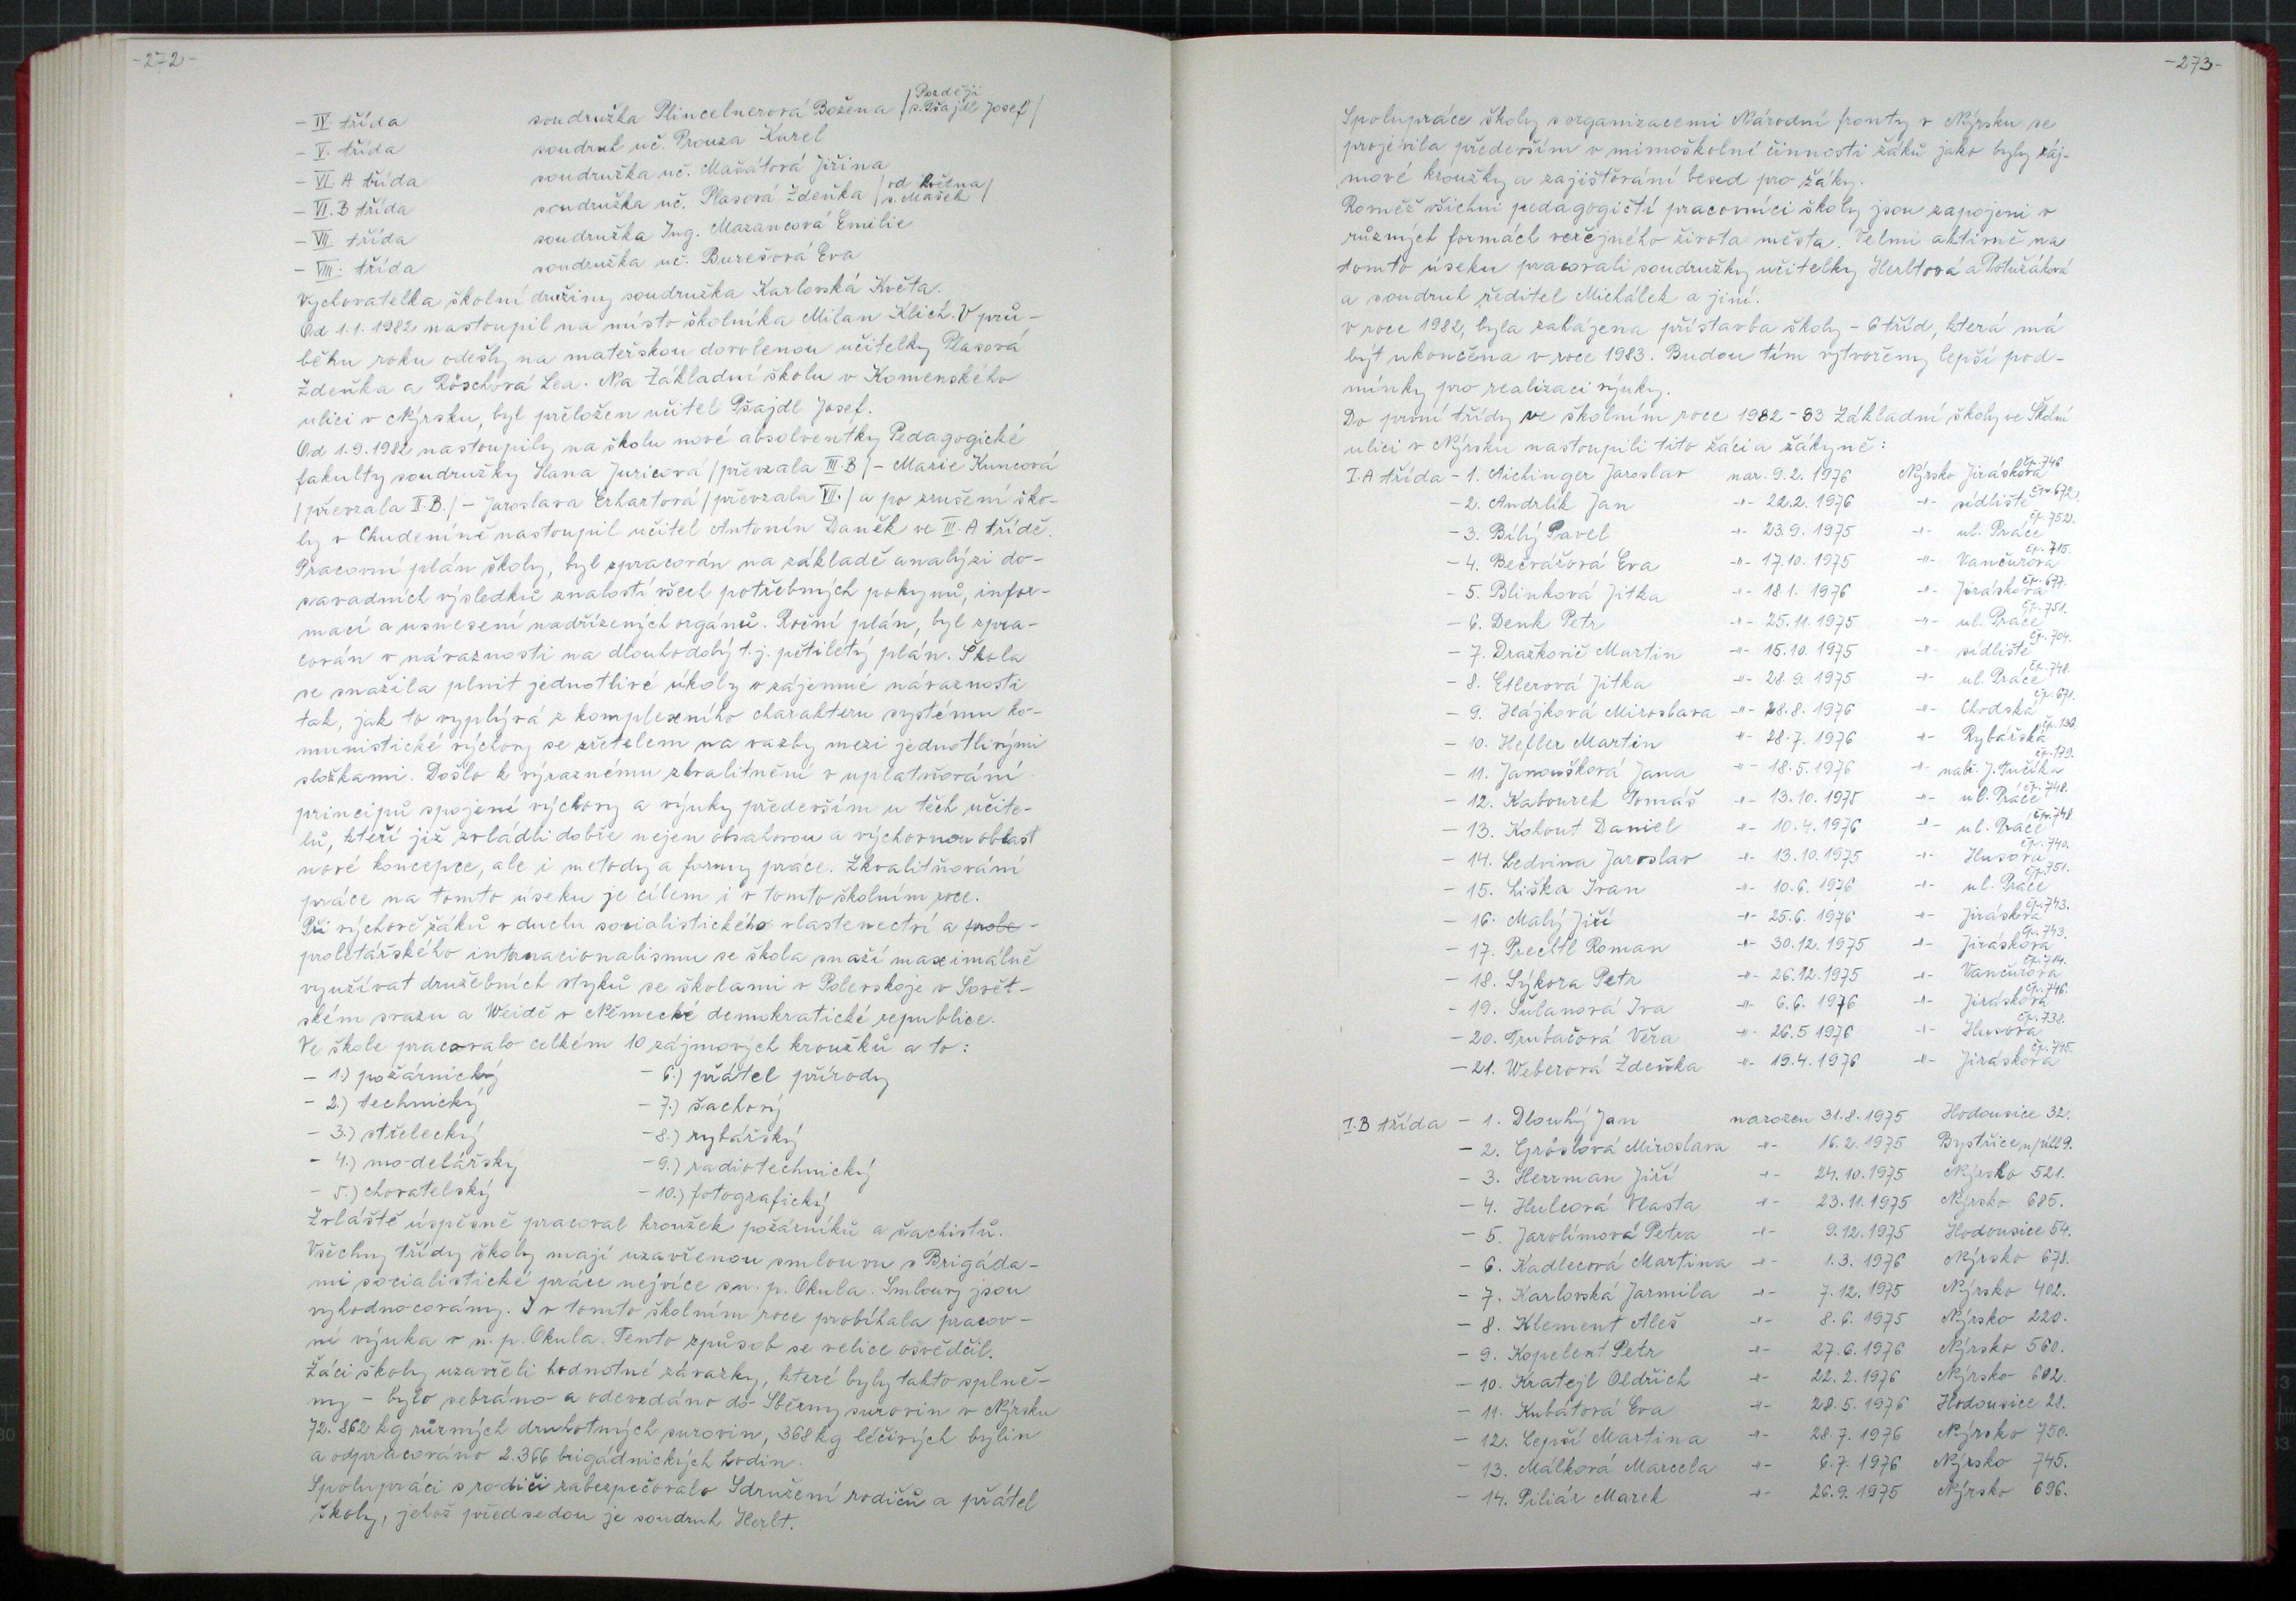 -272-
- IV. třída soudružka Plincelnerová Božena /Později s. Pšajdl Josef/
- V. třída soudruh uč. Prouza Karel
- VI. A třída soudružka uč. Mašátová Jiřina
- VI. B třída soudružka uč. Plasová Zdeňka /od května s. Mašek/
- VII. třída soudružka Ing. Mazancová Emilie
- VIII. třída soudružka uč. Burešová Eva
Vychovatelka školní družiny soudružka Karlovská Květa.
Od 1.1.1982 nastoupil na místo školníka Milan Klich. V prů-
běhu roku odešly na mateřskou dovolenou učitelky Plasová
Zdeňka a Röschová Lea. Na Základní školu v Komenského
ulici v Nýrsku, byl přeložen učitel Pšajdl Josef.
Od 1.9.1982 nastoupily na školu nové absolventky Pedagogické
fakulty soudružky Hana Juricová /převzala III.B/ - Marie Kuncová
/převzala II.B./ - Jaroslava Erhartová /převzala VII./ a po zrušení ško-
ly v Chudeníně nastoupil učitel Antonín Daněk ve III. A třídě.
Pracovní plán školy, byl zpracován na základě analýzi do-
savadních výsledků znalostí všech potřebných pokynů, infor-
mací a usnesení nadřízených orgánů. Roční plán, byl zpra-
cován v návaznosti na dlouhodobý t.j. pětiletý plán. Škola
se snažila plnit jednotlivé úkoly v zájemné návaznosti
tak, jak to vyplývá z komplexního charakteru systému ko-
munistické výchovy se zřetelem na vazby mezi jednotlivými
složkami. Došlo k výraznému zkvalitnění v uplatňování
principů spojení výchovy a výuky především u těch učite-
lů, kteří již zvládli dobře nejen obsahovou a výchovnou oblast
nové koncepce, ale i metody a formy práce. Zkvalitňování
práce na tomto úseku je cílem i v tomto školním roce.
Při výchově žáků v duchu socialistického vlastenectví a prole-
proletářského internacionalismu se škola snaží maximálně
využívat družebních styků se školami v Polevskoje v Sovět-
ském svazu a Weidě v Německé demokratické republice.
Ve škole pracovalo celkém 10 zájmových kroužků a to:
- 1.) požárnický - 6.) přátel přírody
- 2.) technický - 7.) šachový
- 3.) střelecký - 8.) rybářský
- 4.) modelářský - 9.) radiotechnický
- 5.) chovatelský - 10.) fotografický
Zvláště úspěšně pracoval kroužek požárníků a šachistů.
Všechny třídy školy mají uzavřenou smlouvu s Brigáda-
mi socialistické práce nejvíce s n. p. Okula. Smlouvy jsou
vyhodnocovány. I v tomto školním roce probíhala pracov-
ní výuka v n. p. Okula. Tento způsob se velice osvědčil.
Žáci školy uzavřeli hodnotné závazky, které byly takto splně-
ny - bylo sebráno a odevzdáno do Sběrny surovin v Nýrsku
72.862 kg různých druhotných surovin, 368 kg léčivých bylin
a odpracováno 2.366 brigádnických hodin.
Spolupráci s rodiči zabezpečovalo Sdružení rodičů a přátel
školy, jehož předsedou je soudruh Herlt.
-273-
Spolupráce školy s organizacemi Národní fronty v Nýrsku se
projevila především v mimoškolní činnosti žáků jako byly záj-
mové kroužky a zajišťování besed pro žáky.
Rovněž všichni pedagogičtí pracovníci školy jsou zapojeni v
různých formách veřejného života města. Velmi aktivně na
tomto úseku pracovali soudružky učitelky Herltová a Potužáková
a soudruh ředitel Michálek a jiní.
V roce 1982, byla zahájena přístavba školy - 6 tříd, která má
být ukončena v roce 1983. Budou tím vytvořeny lepší pod-
mínky pro realizaci výuky.
Do první třídy ve školním roce 1982-83 Základní školy ve Školní
ulici v Nýrsku nastoupili tito žáci a žákyně:
I.A třída - 1. Aichinger Jaroslav nar. 9.2.1976 Nýrsko Jiráskova čp.746
- 2. Andrlík Jan -"- 22.2.1976 -"- sídliště čp.672.
- 3. Bílý Pavel -"- 23.9.1975 -"- ul. Práce čp.752.
- 4. Bečvářová Eva -"- 17.10.1975 -"- Vančurova čp.715.
- 5. Blinková Jitka -"- 18.1.1976 -"- Jiráskova čp.677.
- 6. Denk Petr -"- 25.11.1975 -"- ul. Práce čp.751.
- 7. Dražkovič Martin -"- 15.10.1975 -"- sídliště čp.704.
- 8. Etlerová Jitka -"- 28.9.1975 -"- ul. Práce čp.748.
- 9. Hájková Miroslava -"- 28.8.1976 -"- Chodská čp.671.
- 10. Hefler Martin -"- 28.7.1976 -"- Rybářská čp.130.
- 11. Janoušková Jana -"- 18.5.1976 -"- nábř. J. Fučíka čp.179.
- 12. Kabourek Tomáš -"- 13.10.1975 -"- ul. Práce čp.748.
- 13. Kohout Daniel -"- 10.4.1976 -"- ul. Práce čp.748.
- 14. Ledvina Jaroslav -"- 13.10.1975 -"- Husova čp.740.
- 15. Liška Ivan -"- 10.6.1976 -"- ul. Práce čp.751.
- 16. Malý Jiří -"- 25.6.1976 -"- Jiráskova čp.743.
- 17. Prechtl Roman -"- 30.12.1975 -"- Jiráskova čp.743.
- 18. Sýkora Petr -"- 26.12.1975 -"- Vančurova čp.714.
- 19. Šulanová Iva -"- 6.6.1976 -"- Jiráskova čp.746.
- 20. Trubačová Věra -"- 26.5.1976 -"- Husova čp.738.
- 21. Weberová Zdeňka -"- 19.4.1976 -"- Jiráskova čp.745.
I.B třída - 1. Dlouhý Jan narozen 31.8.1975 Hodousice 32.
- 2. Gröslová Miroslava -"- 16.2.1975 Bystřice n/Úhl 9.
- 3. Herrman Jiří -"- 24.10.1975 Nýrsko 521.
- 4. Hulcová Vlasta -"- 23.11.1975 Nýrsko 685.
- 5. Jarolímová Petra -"- 9.12.1975 Hodousice 54.
- 6. Kadlecová Martina -"- 1.3.1976 Nýrsko 678.
- 7. Karlovská Jarmila -"- 7.12.1975 Nýrsko 402.
- 8. Klement Aleš -"- 8.6.1975 Nýrsko 220.
- 9. Kopelent Petr -"- 27.6.1976 Nýrsko 560.
- 10. Kratejl Oldřich -"- 22.2.1976 Nýrsko 682.
- 11. Kubátová Eva -"- 28.5.1976 Hodousice 28.
- 12. Lepší Martina -"- 28.7.1976 Nýrsko 750.
- 13. Málková Marcela -"- 6.7.1976 Nýrsko 745.
- 14. Piliár Marek -"- 26.9.1975 Nýrsko 696.